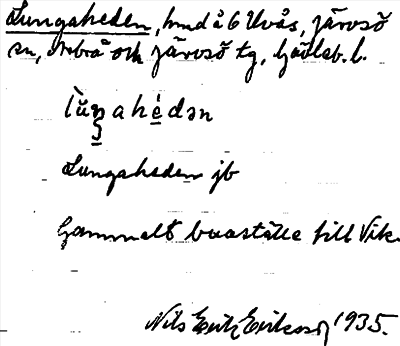 Lungaheden, hmd å 6 Ulvås, Järvsö
sn, Arbrå och Järvsö tg, Gävleb. l.
Lungaheden jb
Gammalt buaställe till Vik.
Nils Erik Eriksson 1935.